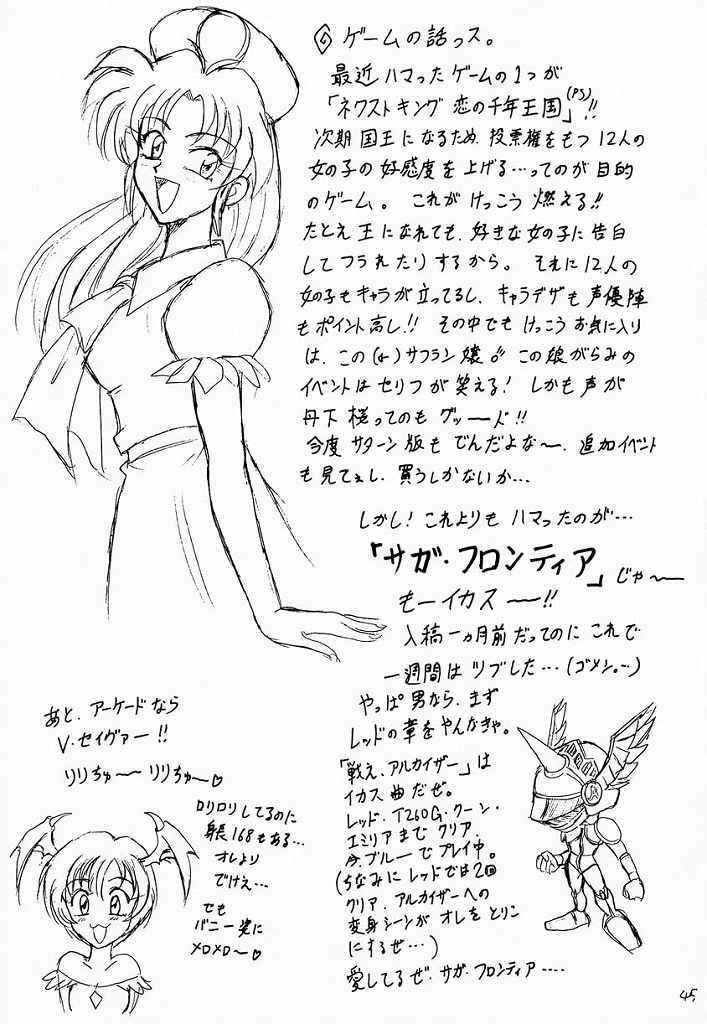 ゲームの話っス。
最近ハマったゲームの1つが
「ネクストキング 恋の千年王国」(PS)!!
次期国王になるため、投票権をもつ12人の
女の子の好感度を上げる…ってのが目的
のゲーム。 これがけっこう燃える!!
たとえ王になれても、好きな女の子に告白
してフラれたりするから。 それに12人の
女の子もキャラが立ってるし、キャラデザも声優陣
もポイント高し!! その中でもけっこうお気に入り
は、この(←)サフラン嬢。 この娘がらみの
イベントはセリフが笑える! しかも声が
丹下桜ってのもグッーード!!
今度サターン版もでんだよな〜、追加イベント
も見てぇし、買うしかないか…
しかし! これよりもハマったのが…
「サガ・フロンティア」じゃ〜
もーイカス〜!!
入稿一ヵ月前だってのにこれで
一週間はツブした…(ゴメン…)
やっぱ男なら、まず
レッドの章をやんなきゃ。
「戦え、アルカイザー」は
イカス曲だぜ。
レッド・T260G・クーン・
エミリアまでクリア、
今、ブルーでプレイ中。
(ちなみにレッドでは2回
クリア、アルカイザーへの
変身シーンがオレをとりこ
にするぜ…)
愛してるぜ、サガ・フロンティア‥‥
あと、アーケードなら
V.セイヴァー!!
リリちゅ〜リリちゅ〜♡
ロリロリしてるのに
身長168もある…
オレより
でけえ…
でも
バニー姿に
メロメロ〜♡
45.